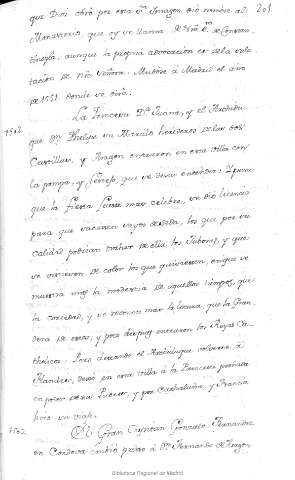 que Dios obró por esta S.ta Imagen dió nombre al 201
Monasterio, que oy se llama de Nrâ S.ra de Constan-
tinopla, aunque la propia advocacion es de la Salu-
tacion de Nrâ Señora. Mudóse á Madrid el año
de 1551. donde se dirá.
1502 La Princesa D.ª Juana, y el Archidu-
que D.n Phelipe su Marido herederos de las dos
Castillas, y Aragon entraron en esta villa con
la pompa, y festejo, que se deviò entender: Y para
que la fiesta fuese mas celebre, se dió licencia
para que sacasen sayos de seda, los que por su
calidad podian traher de ella los Jubones, y que
se vistiesen de color los que quisiesen, en que se
muestra mas la modestia de aquellos tiempos, que
la cortedad, y se reconoce mas la locura, que la gran-
deza de estos, y poco despues entraron los Reyes Ca-
tholicos. Pero deseando el Archiduque volverse á
Flandes, dexó en esta villa á la Princesa preñada
en poder de sus Padres, y por Cathaluña, y Francia
hizo su viage.
1502 El Gran Capitan Gonzalo Fernandez
de Cordova embió preso á D.n Fernando de Aragon
Biblioteca Regional de Madrid